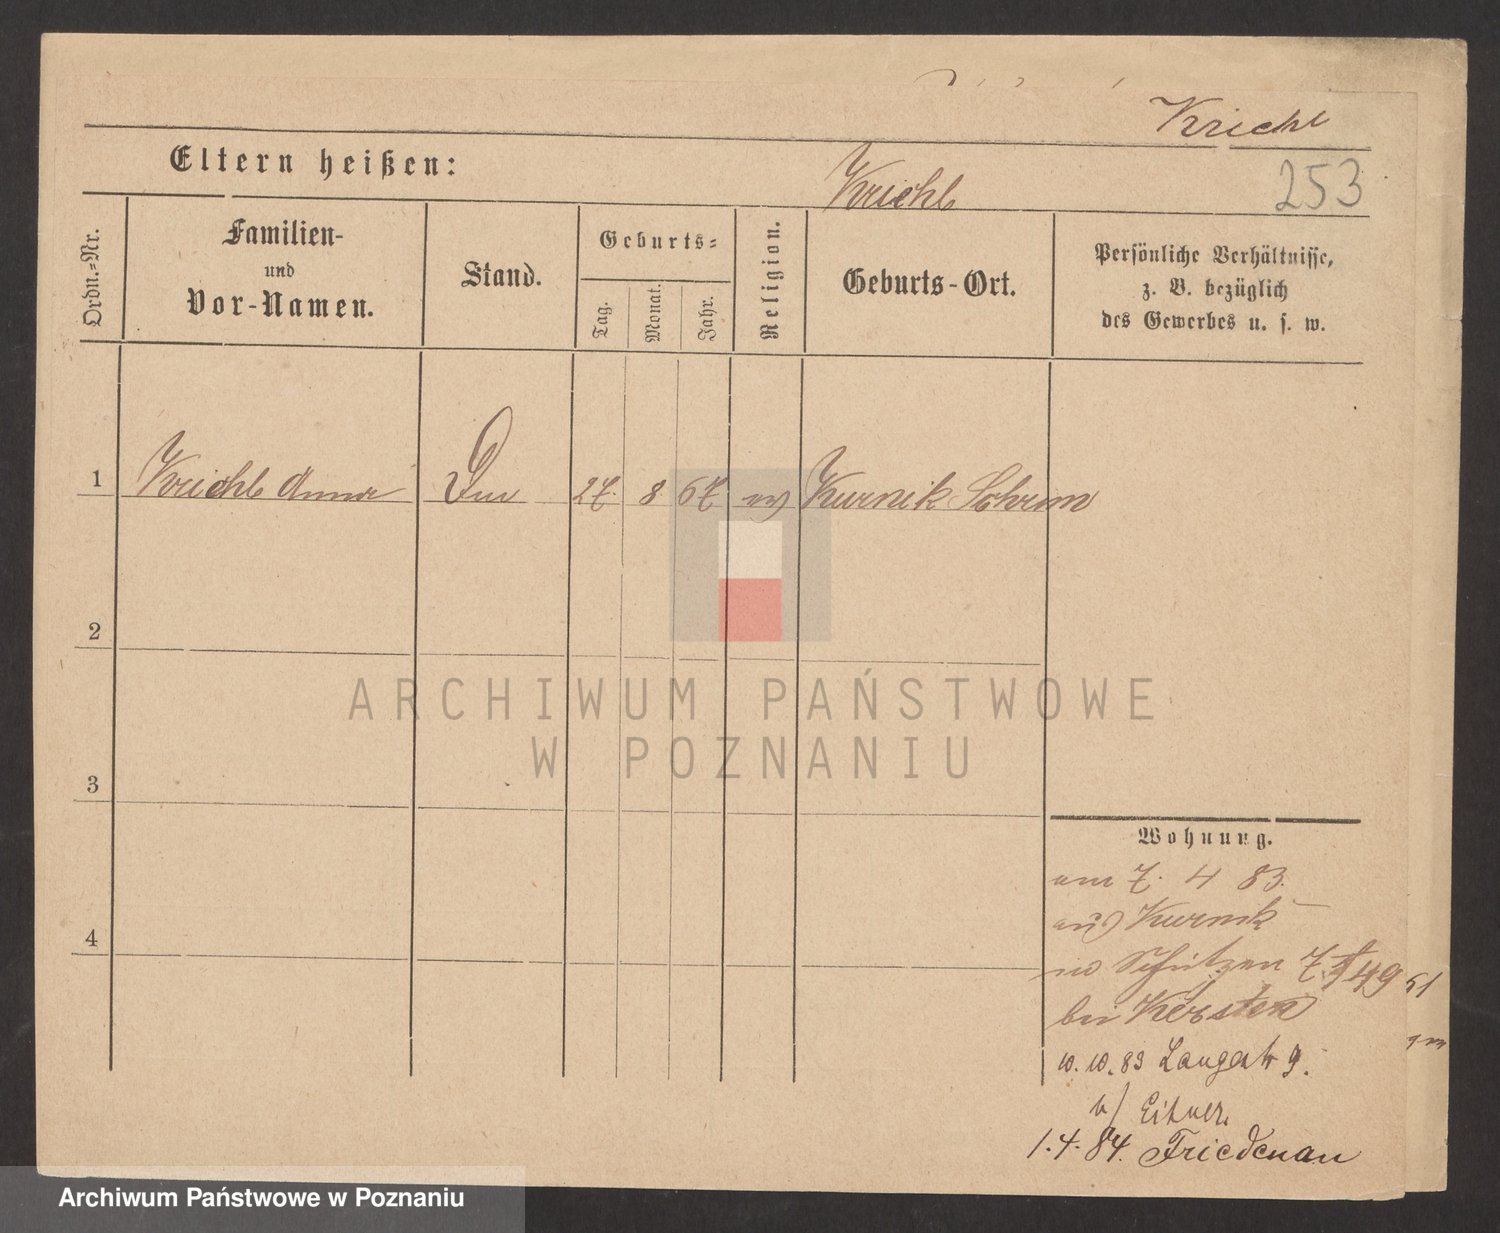 Kriehl
Eltern heißen:
Kriehl
253
Ordn.-Nr.
Familien-
und
Vor-Namen.
Stand.
Geburts-
Tag.
Monat.
Jahr.
Religion.
Geburts-Ort.
Persönliche Verhältnisse,
z. B. bezüglich
des Gewerbes u. s. w.
1 Kriehl Anna 27. 8 67 ev Kurnik Schrim
2
3
4
Wohnung.
am 7. 4 83.
aus Kurnik
Schützen 49
bei Kersten
10. 10. 83 Langestr 9.
b/ Eitner.
1.4.84. Friedenau
51
ARCHIWUM PAŃSTWOWE
W POZNANIU
Archiwum Państwowe w Poznaniu